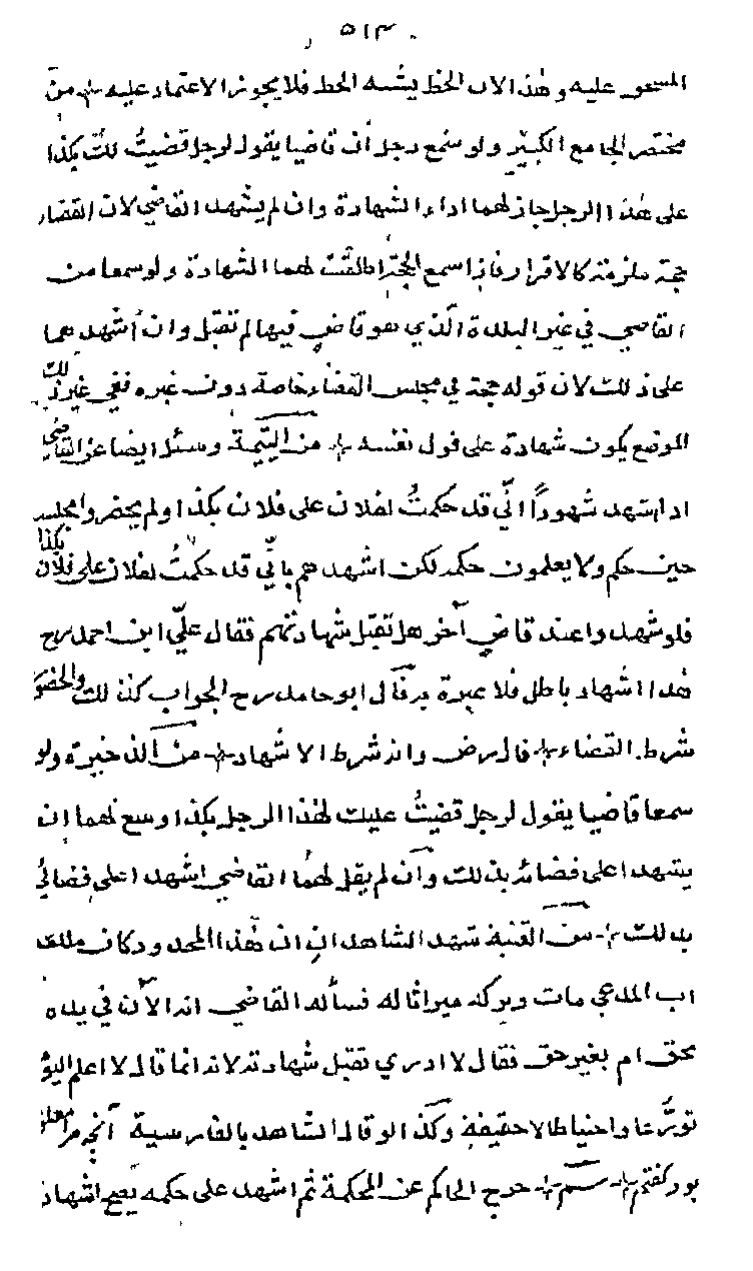 ٥١٣
عليه وهذا لان الخط يشبه الخط فلا يجوز الاعتماد عليه من
مختصر الجامع الكبير ولو سمع رجل ان قاضيا يقول لرجل قضيتُ لك بكذا
على هذا الرجل جاز لهما اداء الشهادة وان لم يشهد القاضي لان القضاء
حجة ملزمة كالاقرار فاذا سمع الحجة اطلقت لهما الشهادة ولو سمعا من
القاضي في غير البلدة الذي هو قاضي فيها لم تقبل وان اشهدهما
على ذلك لان قوله حجة في مجلس القضاء خاصة دون غيره ففي غير ذلك
الموضع يكون شهادة على قول نفسه من اليتيمة وسئل ايضا عن القاضي
اذا شهد شهودًا انّي قد حكمتُ لفلان على فلان بكذا ولم يحضروا مجلس
حين حكم ولا يعلمون حكمه لكن اشهدهم بانّي قد حكمتُ لفلان على فلان بكذا
فلو شهدوا عند قاضي آخر هل تقبل شهادتهم فقال عليّ ابن احمد رح
هذا اشهاد باطل فلا عبرة به قال ابو حامد رح الجواب كذلك والحضور
شرط القضاء قال رض وانه شرط الاشهاد من الذخيرة ولو
سمعا قاضيا يقول لرجل قضيتُ عليك لهذا الرجل بكذا وسع لهما ان
يشهدا على قضائه بذلك وان لم يقل لهما القاضي اشهدا على قضائي
بذلك من القنية شهد الشاهدان ان هذا المحدود كان ملك
اب المدعي مات وتركه ميراثا له فسأله القاضي انه الآن في يده
بحق ام بغير حق فقال لا ادري تقبل شهادته لانه انما قال لا اعلم اليوم
تورّعا واحتياطا لا حقيقة وكذا لو قال الشاهد بالفارسية آنچه مرا معلوم
بود كفتم خرج الحاكم عن المحكمة ثم اشهد على حكمه يصح اشهاده